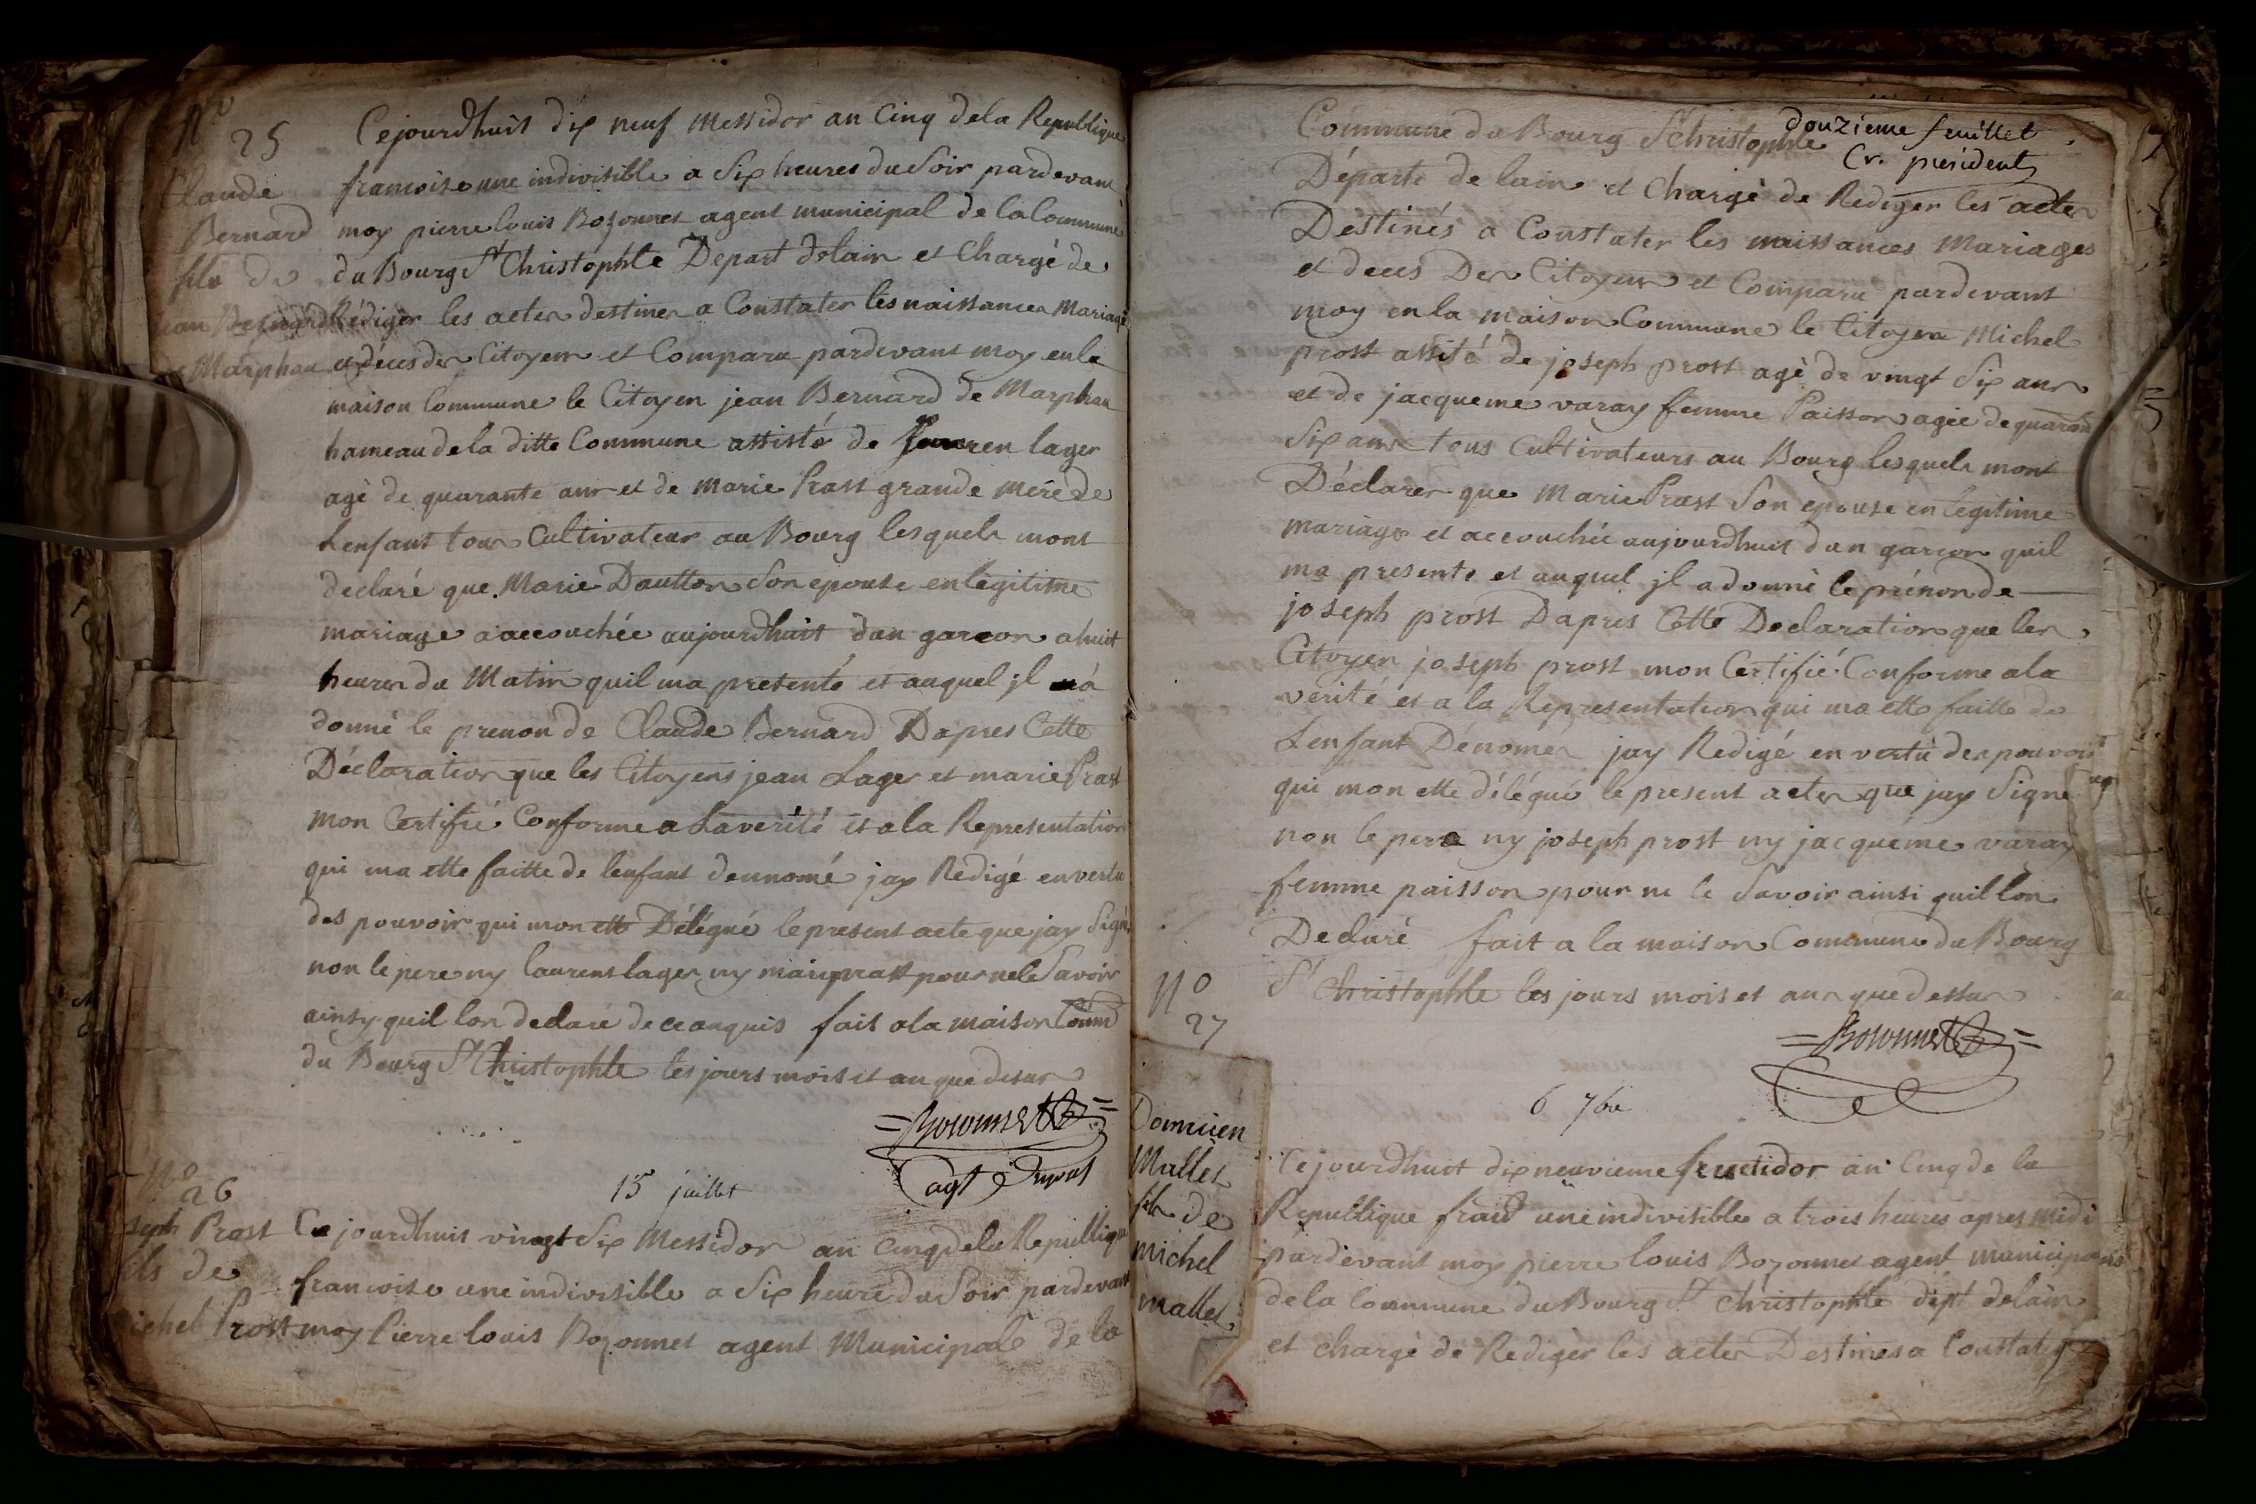 N° 25
Claude
Bernard
fils de
jean Bernard
Marphau
Cejourdhuit dix neuf Messidor an Cinq de la Republique
francoise une indivisible a Six heures du Soir pardevant
moy pierre louis Bozonnet agent municipal de la Commune
du Bourg St Christophle Depart delain et Chargé de
Rédiger les actes destines a Constater les naissances Mariage
et déces des Citoyens et Comparu pardevant moy en la
maison Commune le Citoyen jean Bernard de Marphau
hameau de la ditte Commune assisté de lager
agé de quarante ans et de Marie Prast grande mere de
Lenfant tous Cultivateur au Bourg lesquels mont
declaré que Marie Dautton Son epouse en légitime
mariage a accouchée aujourdhuit dun garcon a huit
heures du Matin quil ma presenté et auquel jl a
donné le prenon de Claude Bernard Dapres Cette
Déclaration que les Citoyens jean Lager et marie Prast
mon Certifié Conforme a La verité et a la Representation
qui ma ette faitte de lenfant dennomé jay Rédigé en vertu
des pouvoir qui mon ette Délégué le present acte que jay Signé
non le pere ny laurent lager ny marie prast pour ne le Savoir
ainsy quil lon declaré de ce anquis fait a la maison Comm
du Bourg St Christophle les jours mois et an que desus
=Bozonnet=
agt
N° 26
seph Prost
fils de
Michel Prost
15 juillet
Ce jourdhuit vingt Six Messidor an Cinq de la Republique
francoise une indivisible a Six heure du Soir pardevant
moy Pierre louis Bozonnet agent Municipale de la
douzieme feuillet
Cr. president
Commune du Bourg St Christophle
Départe de lain et Chargé de Rediger les actes
Destinés a Constater les naissances Mariages
et deces Des Citoyens et Comparu pardevant
moy en la maison Commune le Citoyen Michel
prost assité de joseph prost agé de vingt Six ans
et de jacqueme varay femme Paisson agée de quarante
Six ans tous Cultivateurs au Bourg lesquels mont
Déclarer que Marie Prast Son epouse en legitime
mariage et accouchée aujourdhuit dun garcon quil
ma presente et auquel jl a donné le prénon de
joseph prost Dapres Cette Declaration que les
Citoyen joseph prost mon Certifié Conforme a la
verité et a la Representation qui ma ette faitte de
Lenfant Dénomés jay Redigé en vertu des pouvoir
qui mon ette délégué le present actes que jay Signe
non le pere ny joseph prost ny jacqueme varay
femme paisson pour ne le Savoir ainsi quil lon
Declaré fait a la maison Commune du Bourg
St Christophle les jours mois et ans que dessus
=Bozonnet=
N° 27
Domicien
Mallet
fils de
michel
mallet
6 7bre
Cejourdhuit dix neuvieme fructidor an Cinq de la
Republique franc une indivisible a trois heures apres midi
pardevant moy pierre louis Bozonnet agent municipale
de la Commune du Bourg St Christophle dept delain
et chargé de Rediger les actes Destines a Constater